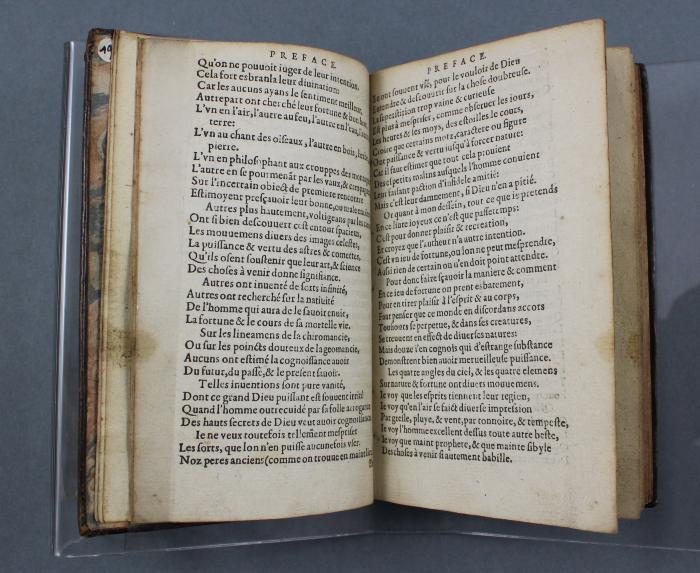 19
PREFACE
Qu'on ne pouuoit iuger de leur intention,
Cela fort esbransla leur diuination:
Car les aucuns ayans le sentiment meilleur,
Autrepart ont cherché leur fortune & bon
L'vn en l'air, l'autre au feu, l'autre en l'eau,
terre:
L'vn au chant des oiseaux, l'autre en bois,
pierre.
L'vn en philosophant aux crouppes des
L'autre en se pourmenãt par les vaux, &
Sur l'incertain obiect de premiere rencontre
Estimoyent presçauoir leur bonne, ou male
Autres plus hautement, voltigeans par les
Ont si bien descouuert cest entour spacieux,
Les mouuemens diuers des images celestes,
La puissance & vertu des astres & comettes,
Qu'ils osent soustenir que leur art, & science
Des choses à venir donne signifiance.
Autres ont inuenté de sorts infinité,
Autres ont recherché sur la natiuité
De l'homme qui aura de le sauoir enuie,
La fortune & le cours de sa mortelle vie.
Sur les lineamens de la chiromancie,
Ou sur les poincts douteux de la geomancie,
Aucuns ont estimé la cognoissance auoir
Du futur, du passé, & le present sauoir.
Telles inuentions sont pure vanité,
Dont ce grand Dieu puissant est souuent irrité
Quand l'homme outrecuidé par sa folle arrogance
Des hauts secrets de Dieu veut auoir cognoissance
Ie ne veux toutefois tellement mespriser
Les sorts, que lon n'en puisse aucunefois vser.
Noz peres anciens (comme on trouue en maint
PREFACE
En ont souuent vsé, pour le vouloir de Dieu
Entendre & descouurir sur la chose doubteuse.
La superstition trop vaine & curieuse
Est plus à mespriser, comme obseruer les iours,
Les heures & les moys, des estoilles le cours,
Croire que certains motz, caractere ou figure
Ont puissance & vertu iusqu'à forcer nature:
Car il faut estimer que tout cela prouient
Des esprits malins ausquels l'homme conuient
Leur faisant paction d'infidele amitié:
Mais c'est leur damnement, si Dieu n'en a pitié.
Or quant à mon dessein, tout ce que ie pretends
En ce liure ioyeux ce n'est que passetemps:
C'est pour donner plaisir & recreation,
Et croyez que l'autheur n'a autre intention.
C'est vn ieu de fortune, ou lon ne peut mesprendre,
Aussi rien de certain ou n'en doit point attendre.
Pour donc faire sçauoir la maniere & comment
En ce ieu de fortune on prent esbatement,
Pour en tirer plaisir à l'esprit & au corps,
Faut penser que ce monde en discordans accors
Tousiours se perpetue, & dans ses creatures,
Se treuuent en effect de diuerses natures:
Mais douze i'en cognois qui d'estrange substance
Demonstrent bien auoir merueilleuse puissance.
Les quatre angles du ciel, & les quatre elemens
Sur nature & fortune ont diuers mouuemens.
Ie voy que les esprits tiennent leur region,
Ie voy qu'en l'air se faict diuerse impression
Par gresle, pluye, & vent, par tonnoire, & tempeste,
Ie voy l'homme excellent dessus toute autre beste,
Ie voy que maint prophete, & que mainte sibyle
Des choses à venir si autement babille.